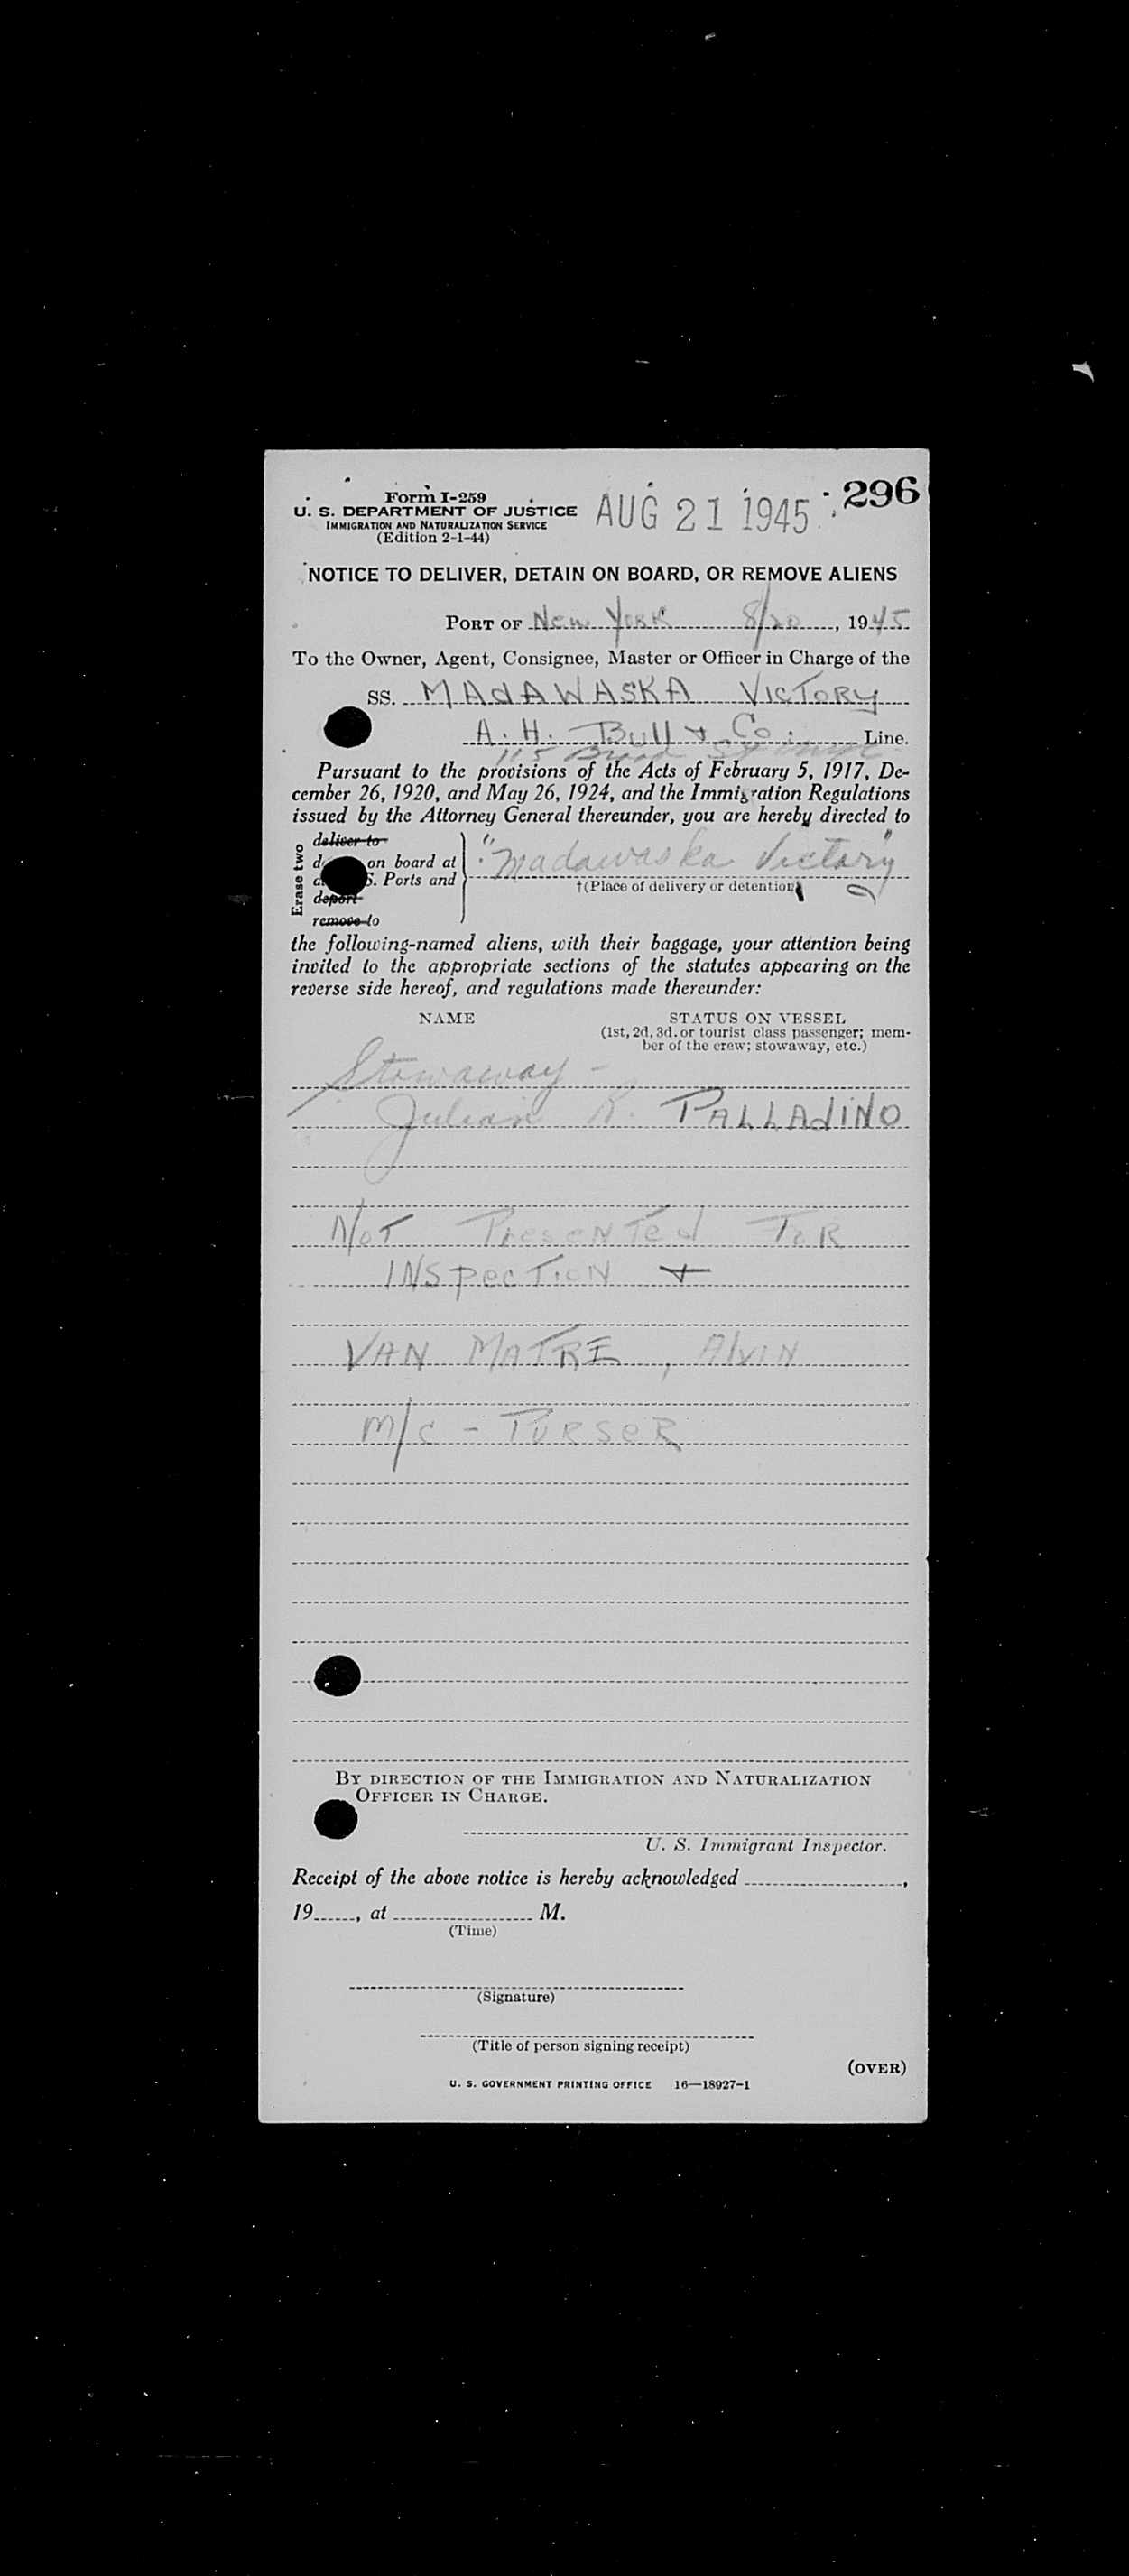 Form I-259
U. S. DEPARTMENT OF JUSTICE
IMMIGRATION AND NATURALIZATION SERVICE
(Edition 2-1-44)
AUG 21 1945
296
NOTICE TO DELIVER, DETAIN ON BOARD, OR REMOVE ALIENS
PORT OF New York 8/20, 1945
To the Owner, Agent, Consignee, Master or Officer in Charge of the
SS. MADAWASKA VICTORY
A. H. Bull & Co. Line.
115 Broad St
Pursuant to the provisions of the Acts of February 5, 1917, De-
cember 26, 1920, and May 26, 1924, and the Immigration Regulations
issued by the Attorney General thereunder, you are hereby directed to
Erase two
deliver to
on board at
S. Ports and
deport
remove to
"Madawaska Victory"
†(Place of delivery or detention)
the following-named aliens, with their baggage, your attention being
invited to the appropriate sections of the statutes appearing on the
reverse side hereof, and regulations made thereunder:
NAME
STATUS ON VESSEL
(1st, 2d, 3d, or tourist class passenger; mem-
ber of the crew; stowaway, etc.)
Stowaway -
Julian R. PALLADINO
NOT PRESENTED FOR
INSPECTION +
VAN MATRE, Alvin
M/C - PURSER
BY DIRECTION OF THE IMMIGRATION AND NATURALIZATION
OFFICER IN CHARGE.
U. S. Immigrant Inspector.
Receipt of the above notice is hereby acknowledged ,
19 , at M.
(Time)
(Signature)
(Title of person signing receipt)
(OVER)
U. S. GOVERNMENT PRINTING OFFICE 16—18927-1